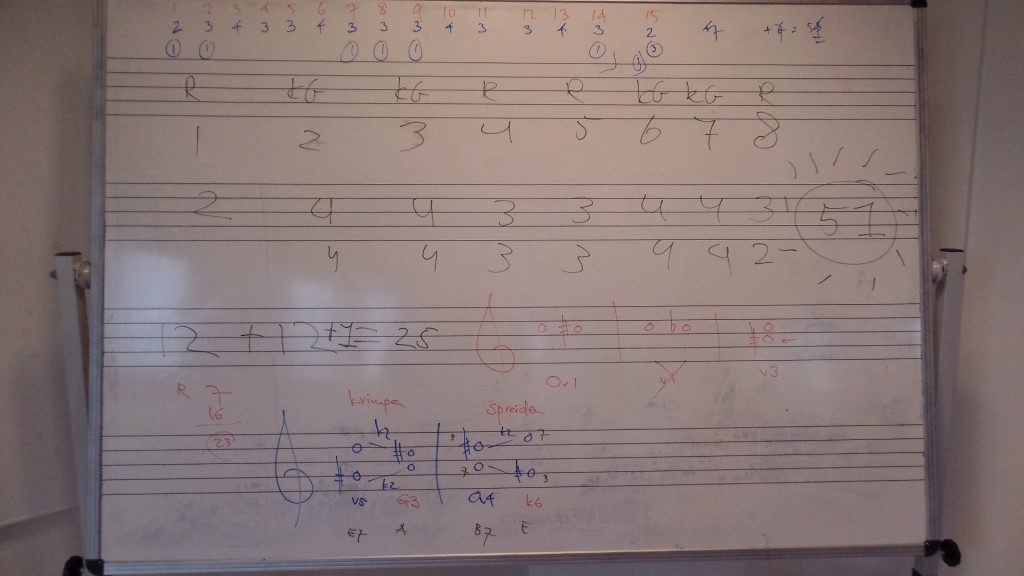 1 2 3 4 5 6 7 8 9 10 11 12 13 14 15
2 3 4 3 3 4 3 3 3 4 3 3 4 3 2 47
1 1 1 1 1 1 3
R KG KG R R KG KG R
1 2 3 4 5 6 7 8
2 4 4 3 3 4 4 3 51
4 4 3 3 4 4 2 -
12 + 12 + 1 = 25
0.1 v1 v3
R 7
16
23
krimpa špmida
k2 k2 7
k2 3
v5 G3 Q4 k6
E7 A B7 E